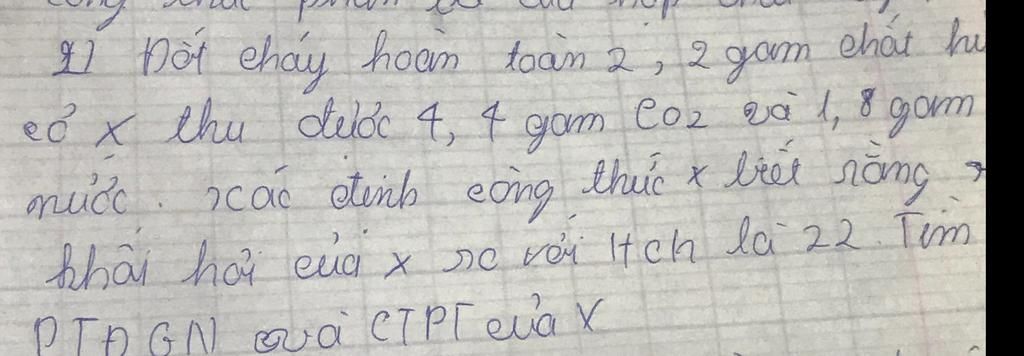 2) Đốt cháy hoàn toàn 2,2 gam chất hữ
cơ X thu được 4,4 gam CO2 và 1,8 gam
nước. xác định công thức X biết rằng
khối hơi của X so với Hch là 22. Tìm
PTĐGN và CTPT của X